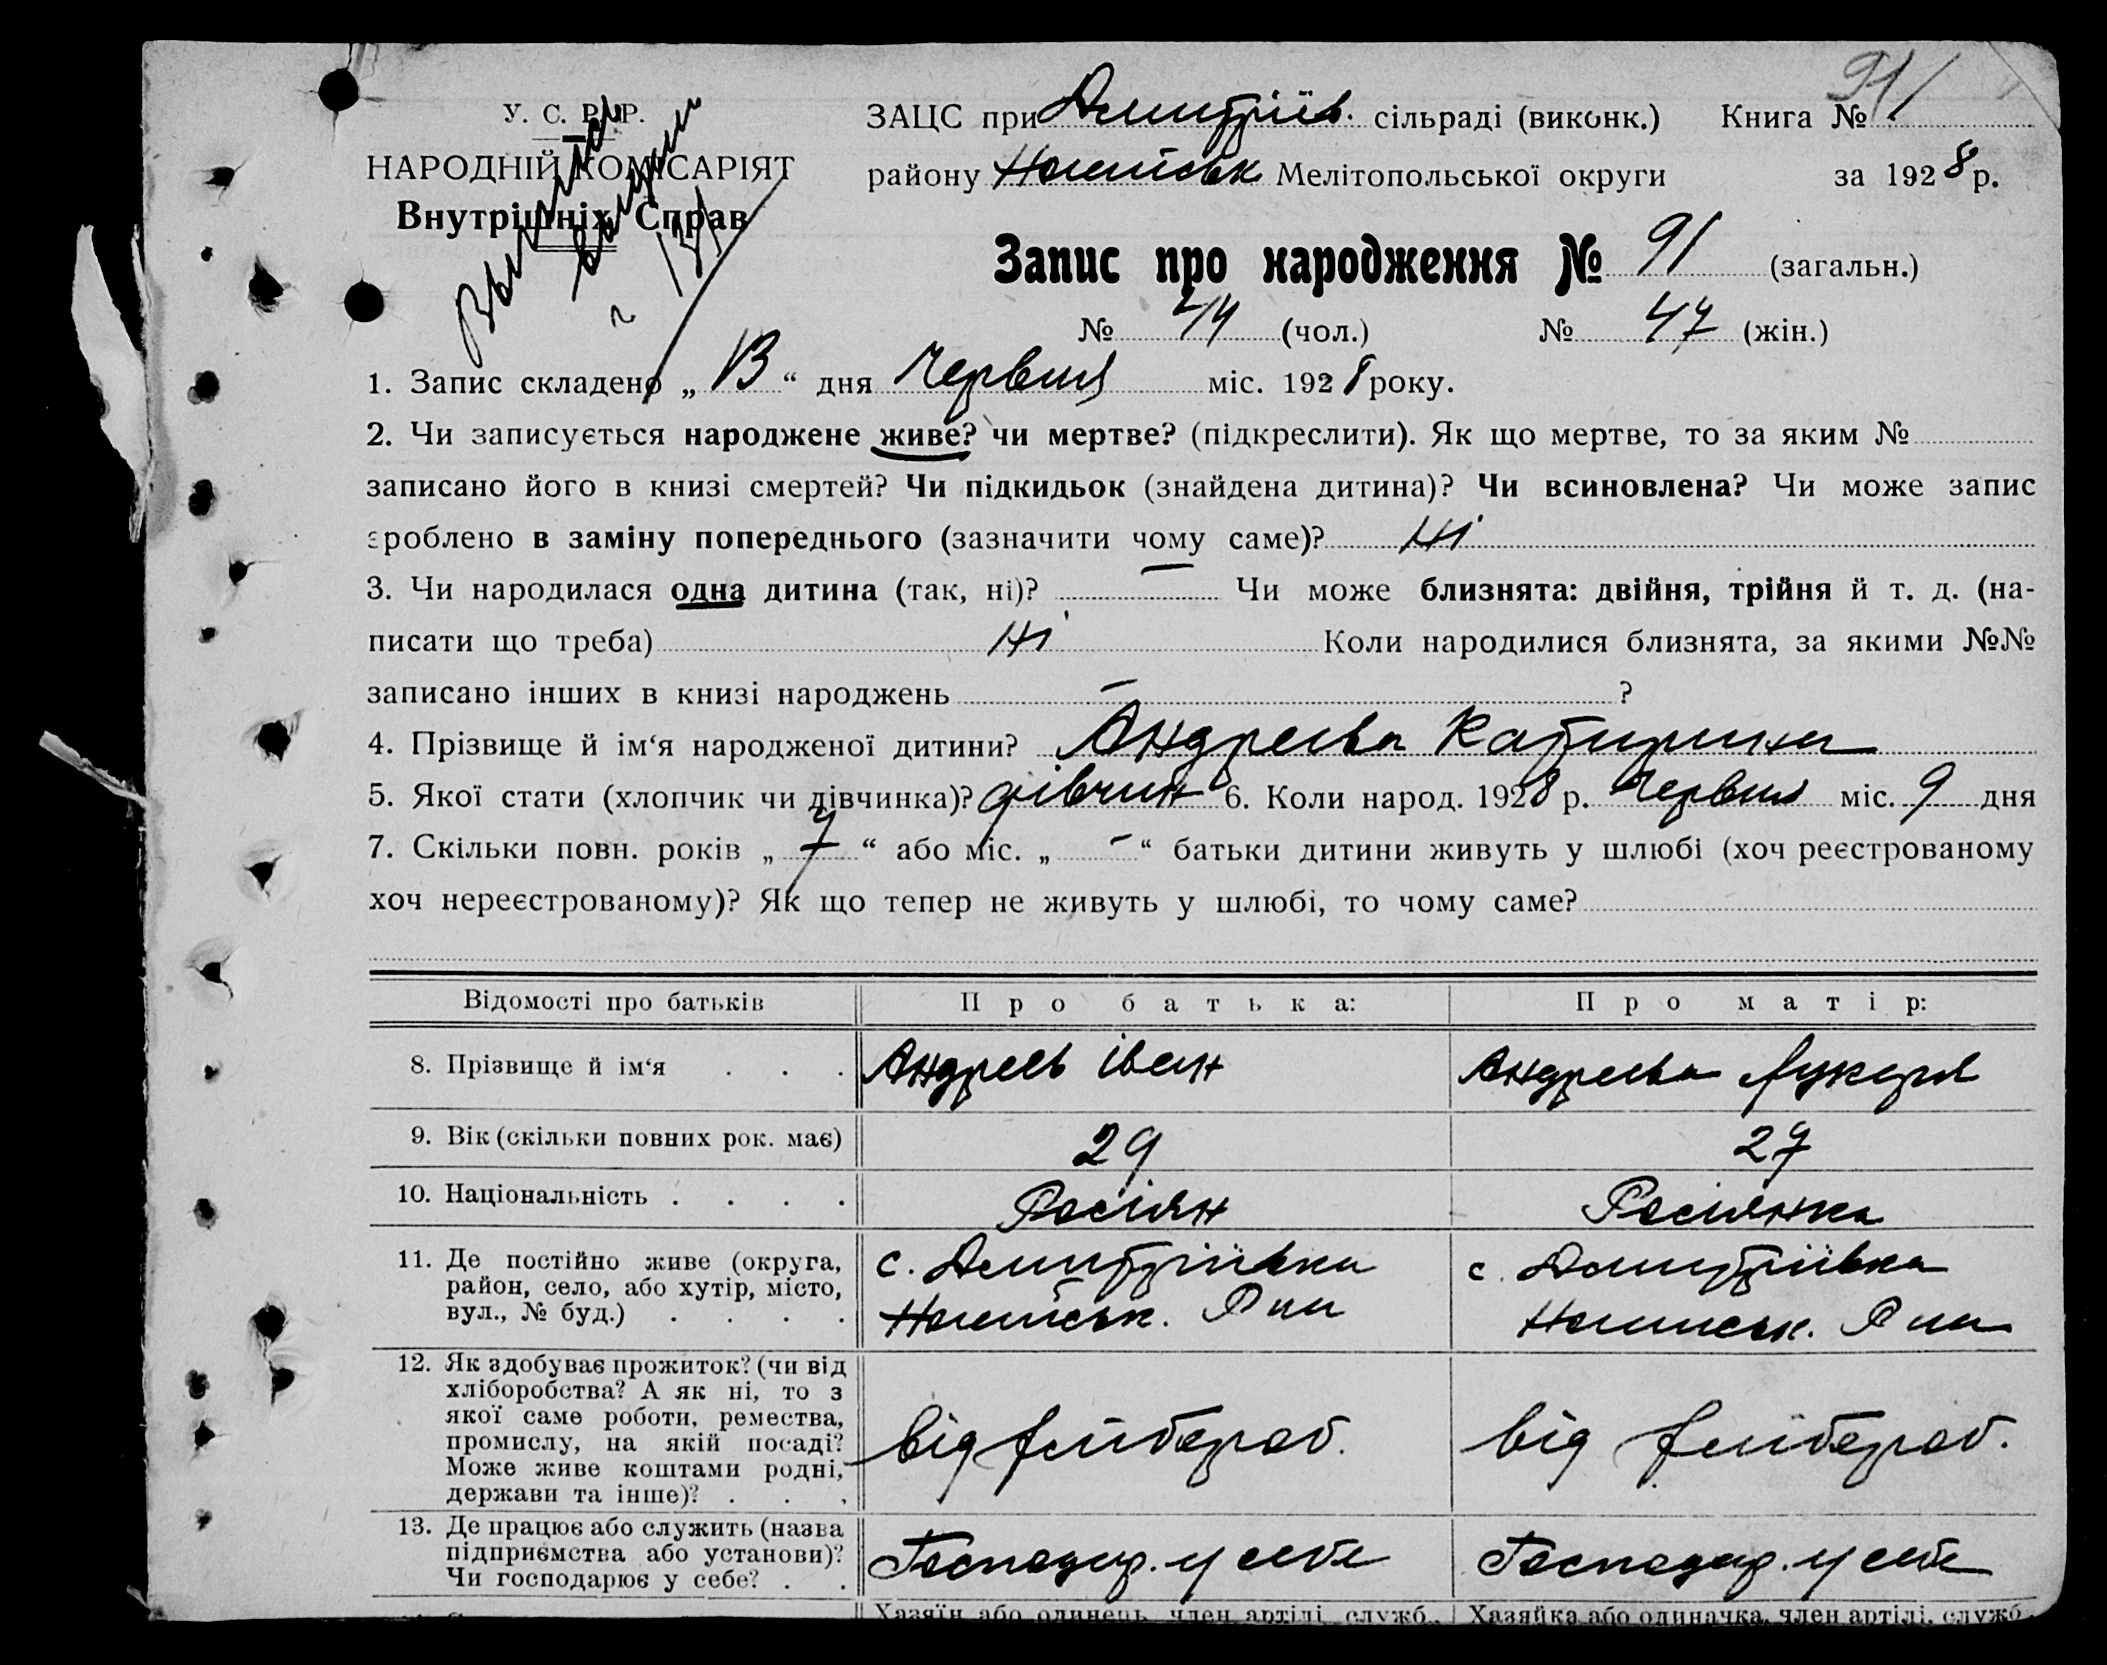 91
У. С. Р. Р. ЗАЦС при Дмитріїв. сільраді (виконк.) Книга №
НАРОДНІЙ КОМІСАРІЯТ району Ногайськ Мелітопольської округи за 1928 р.
Внутрішніх Справ
Запис про народження № 91 (загальн.)
№ 44 (чол.) № 47 (жін.)
1. Запис складено „ 13 “ дня Червня міс. 1928 року.
2. Чи записується народжене живе? чи мертве? (підкреслити). Як що мертве, то за яким №
записано його в книзі смертей? Чи підкидьок (знайдена дитина)? Чи всиновлена? Чи може запис
зроблено в заміну попереднього (зазначити чому саме)? Ні
3. Чи народилася одна дитина (так, ні)? — Чи може близнята: двійня, трійня й т. д. (на-
писати що треба) Ні Коли народилися близнята, за якими №№
записано інших в книзі народжень — ?
4. Прізвище й ім‘я народженої дитини? Андреєва Катирина
5. Якої стати (хлопчик чи дівчинка)? дівчин 6. Коли народ. 1928 р. Червня міс. 9 дня
7. Скільки повн. років „ 7 “ або міс. „ - “ батьки дитини живуть у шлюбі (хоч реєстрованому
хоч нереєстрованому)? Як що тепер не живуть у шлюбі, то чому саме?
Відомості про батьків Про батька: Про матір:
8. Прізвище й ім‘я . . . Андреєв Іван Андреєва Лукеря
9. Вік (скільки повних рок. має) 29 27
10. Національність . . . . Росіян Росіянка
11. Де постійно живе (округа, с. Дмитріївка с. Дмитріївка
район, село, або хутір, місто, Ногайськ. Р-ну Ногайськ. Р-ну
вул., № буд.) . . . .
12. Як здобуває прожиток? (чи від
хліборобства? А як ні, то з
якої саме роботи, ремества,
промислу, на якій посаді? від хлібороб. від хлібороб.
Може живе коштами родні,
держави та інше)? . . .
13. Де працює або служить (назва
підприємства або установи)? Господар. у себе Господар. у себе
Чи господарює у себе? . .
Хазяїн або одинець, член артілі, служб. Хазяйка або одиначка, член артілі, служб.